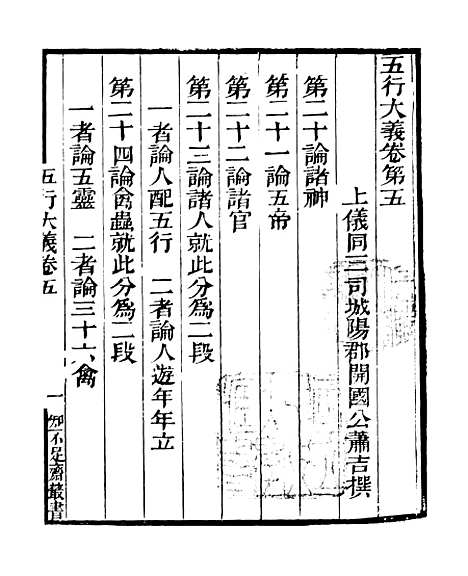 五行大義卷第五
上儀同三司城陽郡開國公蕭吉撰
第二十論諸神
第二十一論五帝
第二十二論諸官
第二十三論諸人就此分爲二段
一者論人配五行　二者論人遊年年立
第二十四論禽蟲就此分爲二段
一者論五靈　二者論三十六禽
五行大義卷五
一
知不足齋叢書